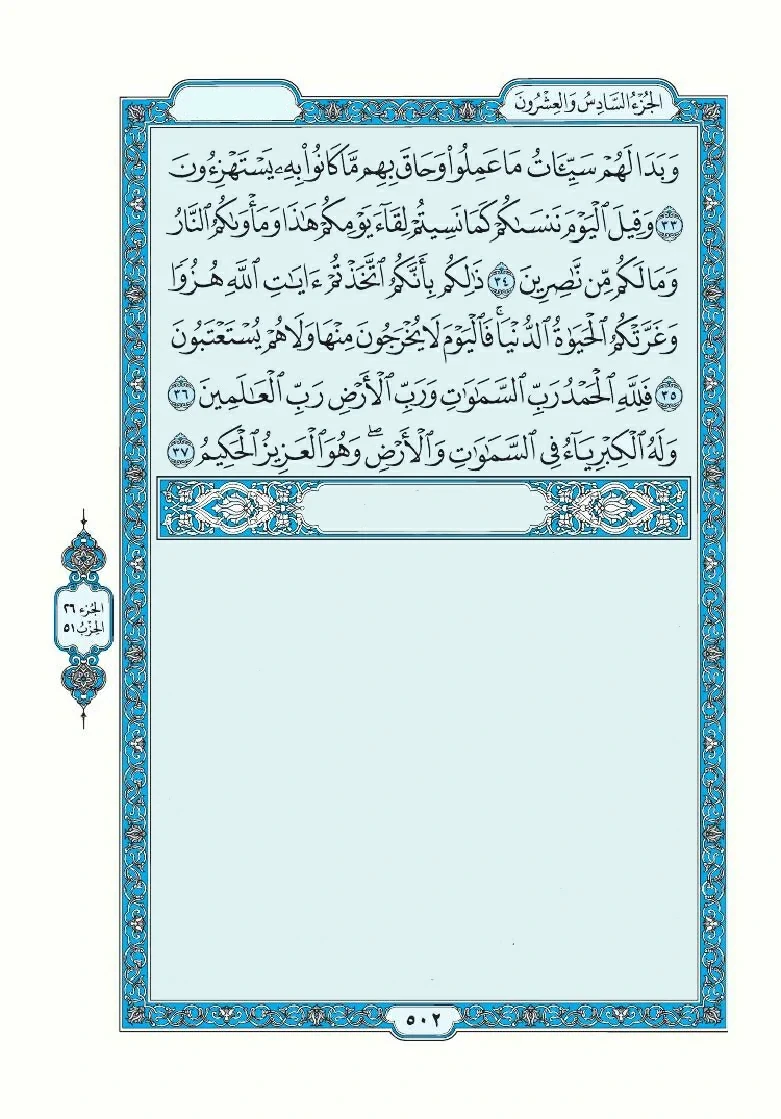 الجُزْءُ السَّادِسُ وَالعِشْرُونَ
وَبَدَا لَهُمْ سَيِّـَٔاتُ مَا عَمِلُوا۟ وَحَاقَ بِهِم مَّا كَانُوا۟ بِهِۦ يَسْتَهْزِءُونَ
٣٣ وَقِيلَ ٱلْيَوْمَ نَنسَىٰكُمْ كَمَا نَسِيتُمْ لِقَآءَ يَوْمِكُمْ هَٰذَا وَمَأْوَىٰكُمُ ٱلنَّارُ
وَمَا لَكُم مِّن نَّٰصِرِينَ ٣٤ ذَٰلِكُم بِأَنَّكُمُ ٱتَّخَذْتُمْ ءَايَٰتِ ٱللَّهِ هُزُوًا
وَغَرَّتْكُمُ ٱلْحَيَوٰةُ ٱلدُّنْيَا ۚ فَٱلْيَوْمَ لَا يُخْرَجُونَ مِنْهَا وَلَا هُمْ يُسْتَعْتَبُونَ
٣٥ فَلِلَّهِ ٱلْحَمْدُ رَبِّ ٱلسَّمَٰوَٰتِ وَرَبِّ ٱلْأَرْضِ رَبِّ ٱلْعَٰلَمِينَ ٣٦
وَلَهُ ٱلْكِبْرِيَآءُ فِى ٱلسَّمَٰوَٰتِ وَٱلْأَرْضِ ۖ وَهُوَ ٱلْعَزِيزُ ٱلْحَكِيمُ ٣٧
الجُزء ٢٦
الحِزْبُ ٥١
٥٠٢